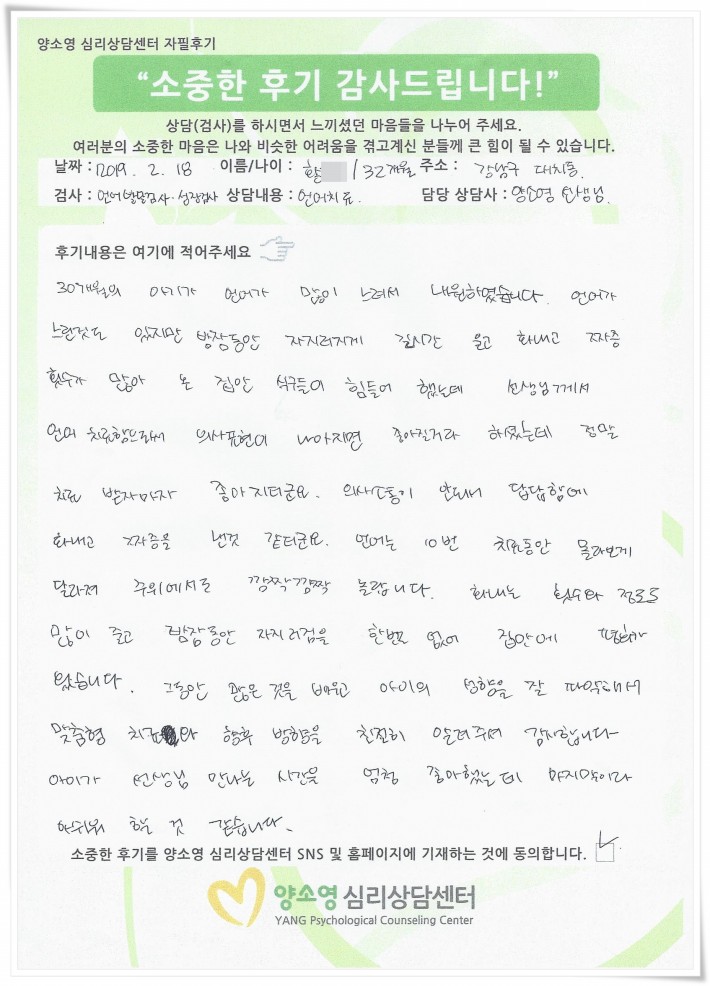 양소영 심리상담센터 자필후기
“소중한 후기 감사드립니다!”
상담(검사)를 하시면서 느끼셨던 마음들을 나누어 주세요.
여러분의 소중한 마음은 나와 비슷한 어려움을 겪고계신 분들께 큰 힘이 될 수 있습니다.
날짜 : 2019. 2. 18 이름/나이 : 황 / 32개월 주소 : 강남구 대치동
검사 : 언어발달검사· 상담내용 : 언어치료. 담당 상담사 : 양소영 선생님.
후기내용은 여기에 적어주세요
30개월의 아기가 언어가 많이 느려서 내원하였습니다. 언어가
느린것도 있지만 밤잠동안 자지러지게 몇시간 울고 화내고 짜증
횟수가 많아 온 집안 식구들이 힘들어 했는데 선생님께서
언어 치료함으로써 의사표현이 나아지면 좋아질거라 하셨는데 정말
치료 받자마자 좋아지더군요. 의사소통이 안되니 답답함에
화내고 짜증을 낸것 같더군요. 언어는 10번 치료동안 몰라보게
달라져 주위에서도 깜짝깜짝 놀랍니다. 화내는 횟수와 정도도
많이 줄고 밤잠동안 자지러짐을 한번도 없어 집안에 평화가
왔습니다. 그동안 많은 것을 배우고 아이의 성향을 잘 파악해서
맞춤형 치료와 향후 방향을 친절히 알려주셔 감사합니다
아이가 선생님 만나는 시간을 엄청 좋아했는데 마지막이라
아쉬워 할 것 같습니다.
소중한 후기를 양소영 심리상담센터 SNS 및 홈페이지에 기재하는 것에 동의합니다.
양소영 심리상담센터
YANG Psychological Counseling Center